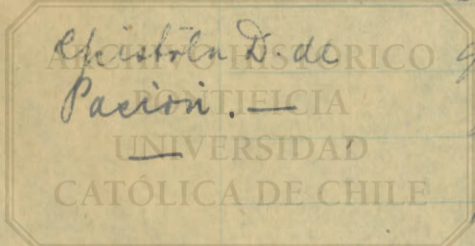 Epistola D. de
Pasión. —
ARCHIVO HISTÓRICO
PONTIFICIA
UNIVERSIDAD
CATÓLICA DE CHILE